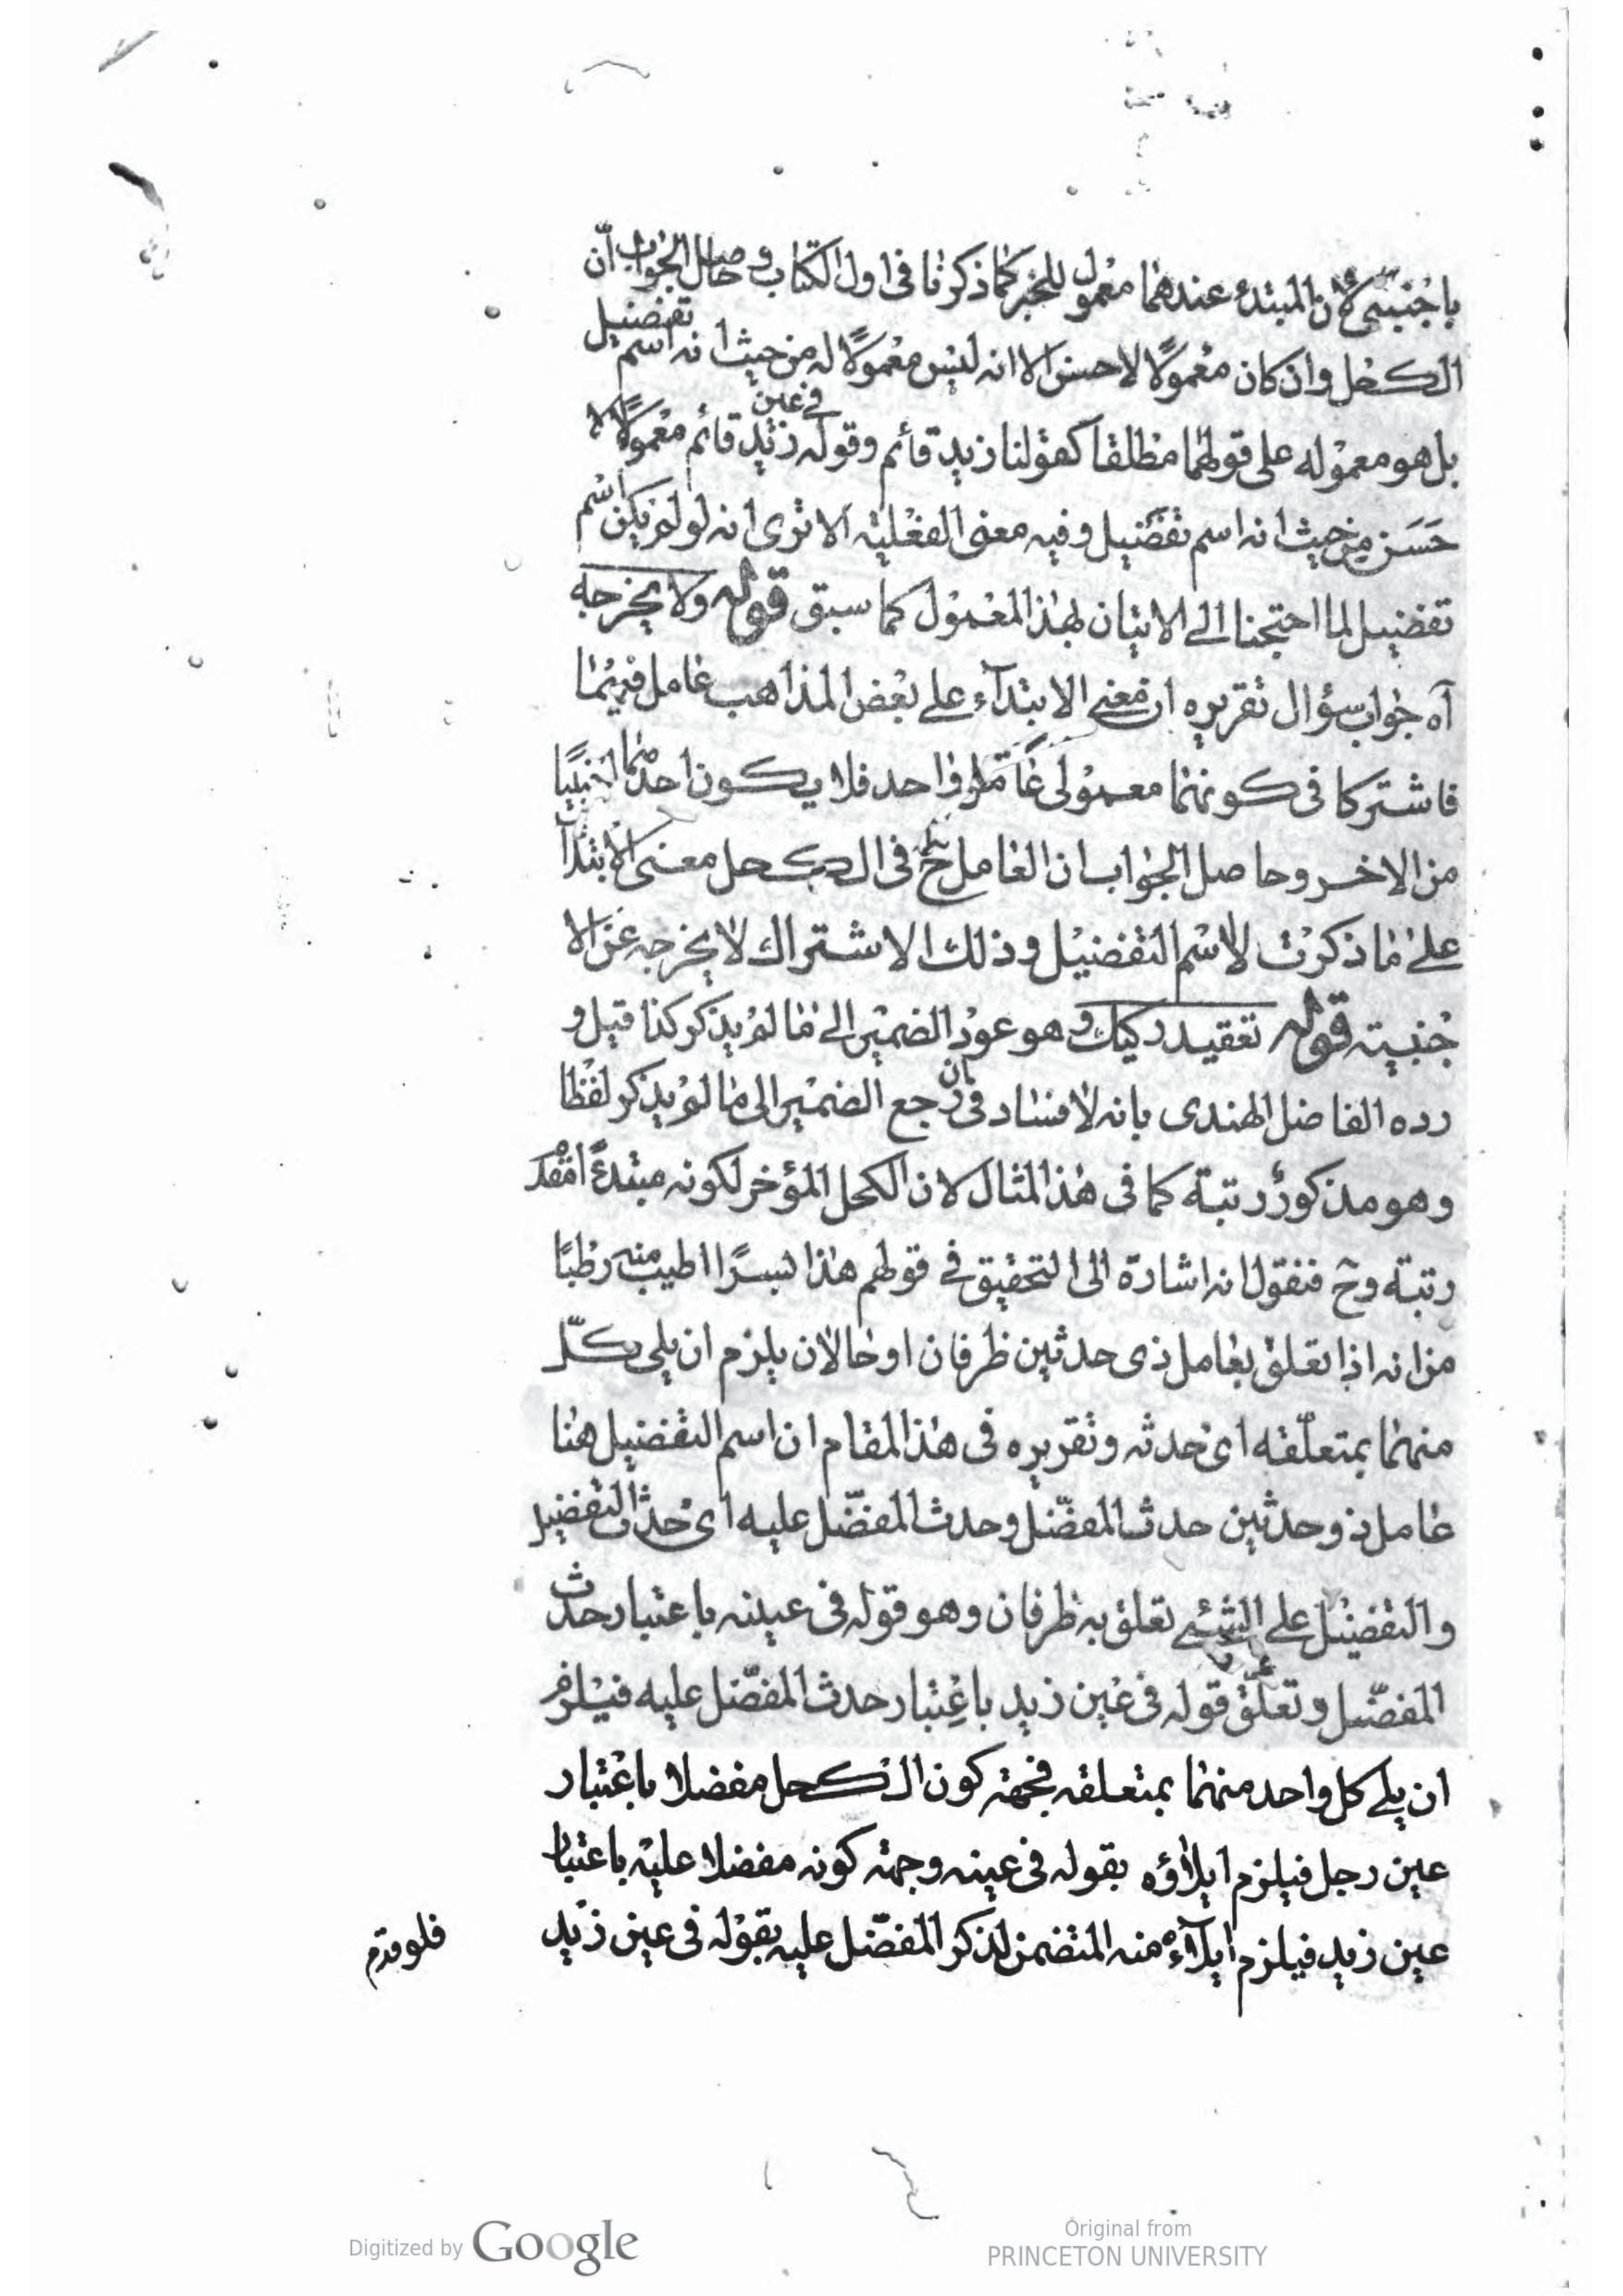 باجنبى لان المبتدء عندهما معمول للخبر كما ذكرنا فى اول الكتاب وحاصل الجواب ان
الكحل وان كان معمولا لاحسن الا انه ليس معمولا له من حيث انه اسم تفضيل
بل هو معموله على قولهما مطلقا كقولنا زيد قائم وقوله فى عين زيد قائم معمولا لا
حسن من حيث انه اسم تفضيل وفيه معنى الفعلية الا ترى انه لو لم يكن اسم
تفضيل لما احتجنا الى الاتيان لهذا المعمول كما سبق قوله ولا يخرجه
آه جواب سؤال تقريره ان معنى الابتدآء على بعض المذاهب عامل فيهما
فاشتركا فى كونهما معمولى عامل واحد فلا يكون احدهما اجنبيا
من الاخر وحاصل الجواب ان العامل ح فى الكحل معنى الابتدآ
على ما ذكرت لا اسم التفضيل وذلك الاشتراك لا يخرجه عن الا
جنبية قوله تعقيد ركيك وهو عود الضمير الى ما لم يذكر كذا قيل و
رده الفاضل الهندى بانه لا فساد فى ان رجع الضمير الى ما لم يذكر لفظا
وهو مذكور رتبة كما فى هذا المثال لان الكحل المؤخر لكونه مبتدء
رتبة وح فنقول انه اشارة الى التحقيق فى قولهم هذا بسرا اطيب منه رطبا
من انه اذا تعلق بعامل ذى حدثين ظرفان او حالان يلزم ان يلى كل
منهما بمتعلقه اى حدثه وتقريره فى هذا المقام ان اسم التفضيل هنا
عامل ذو حدثين حدث المفضل وحدث المفضل عليه اى حدث التفضيل
والتفضيل على الشئ تعلق به ظرفان وهو قوله فى عينه باعتبار حدث
المفضل وتعلق قوله فى عين زيد باعتبار حدث المفضل عليه فيلزم
ان يلى كل واحد منهما بمتعلقه فجهة كون الكحل مفضلا باعتبار
عين رجل فيلزم ايلاؤه بقوله فى عينه وجهة كونه مفضلا عليه باعتبار
عين زيد فيلزم ايلآءه منه المتضمن لذكر المفضل عليه بقوله فى عين زيد
فلو قدم
Digitized by Google
Original from
PRINCETON UNIVERSITY